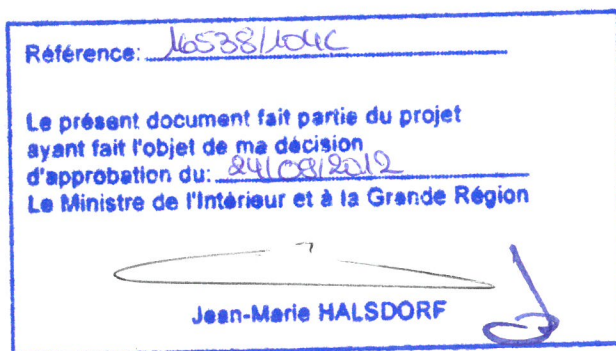 Référence: 16538/104C
Le présent document fait partie du projet
ayant fait l'objet de ma décision
d'approbation du: 24/08/2012
Le Ministre de l'Intérieur et à la Grande Région
Jean-Marie HALSDORF